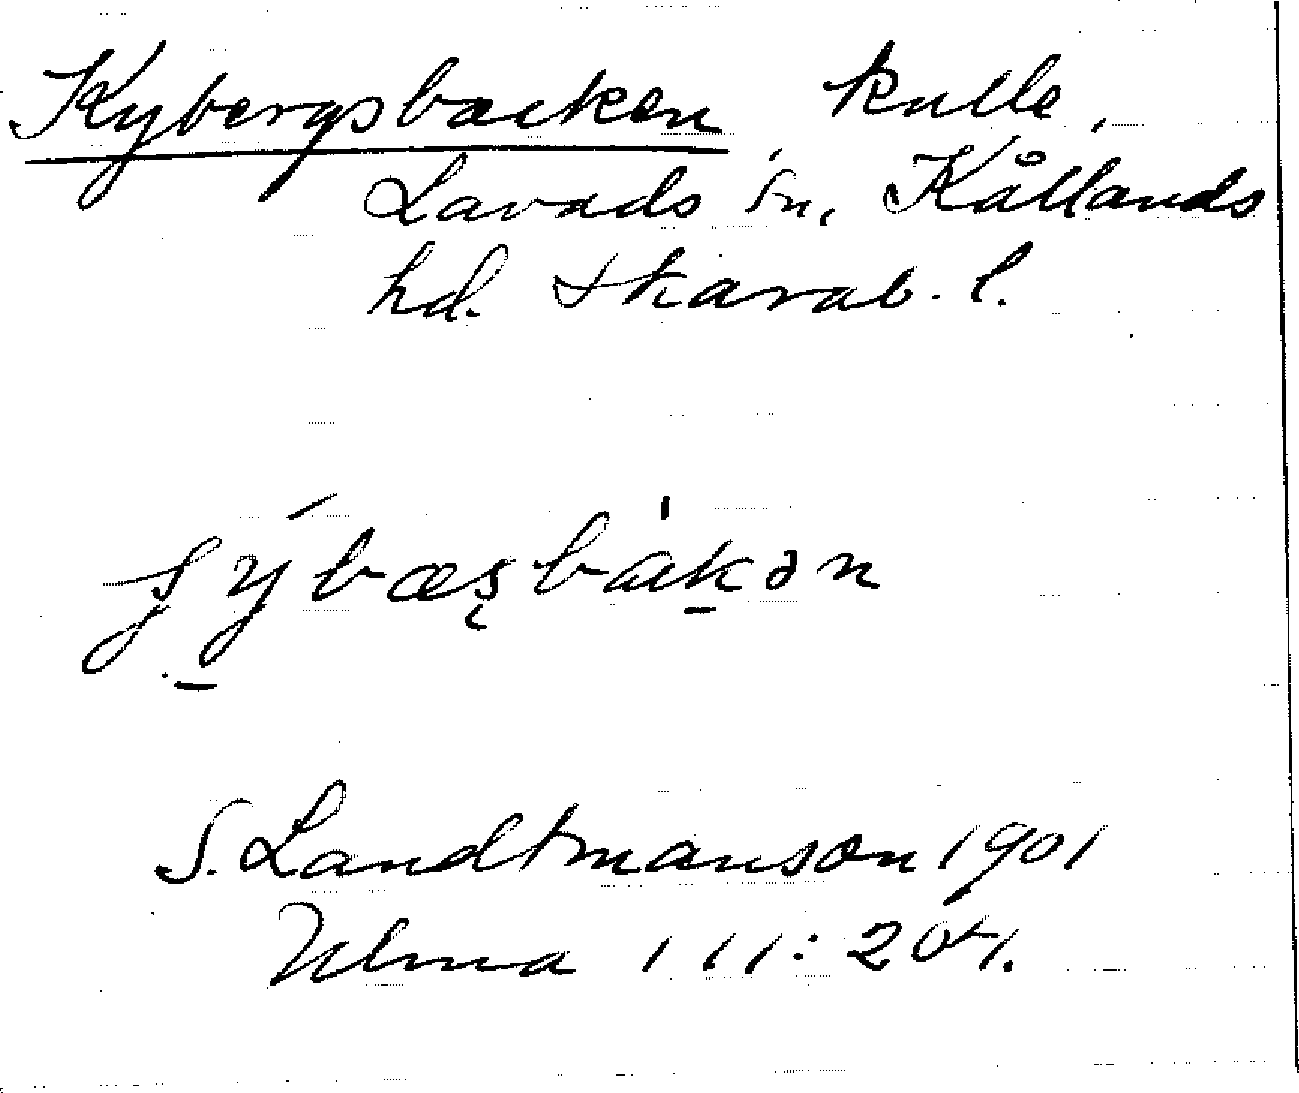 Kybergsbacken kulle,
Lavads sn, Kållands
hd. Skarab. l.
S. Landtmanson 1901
Ulma 111:204.